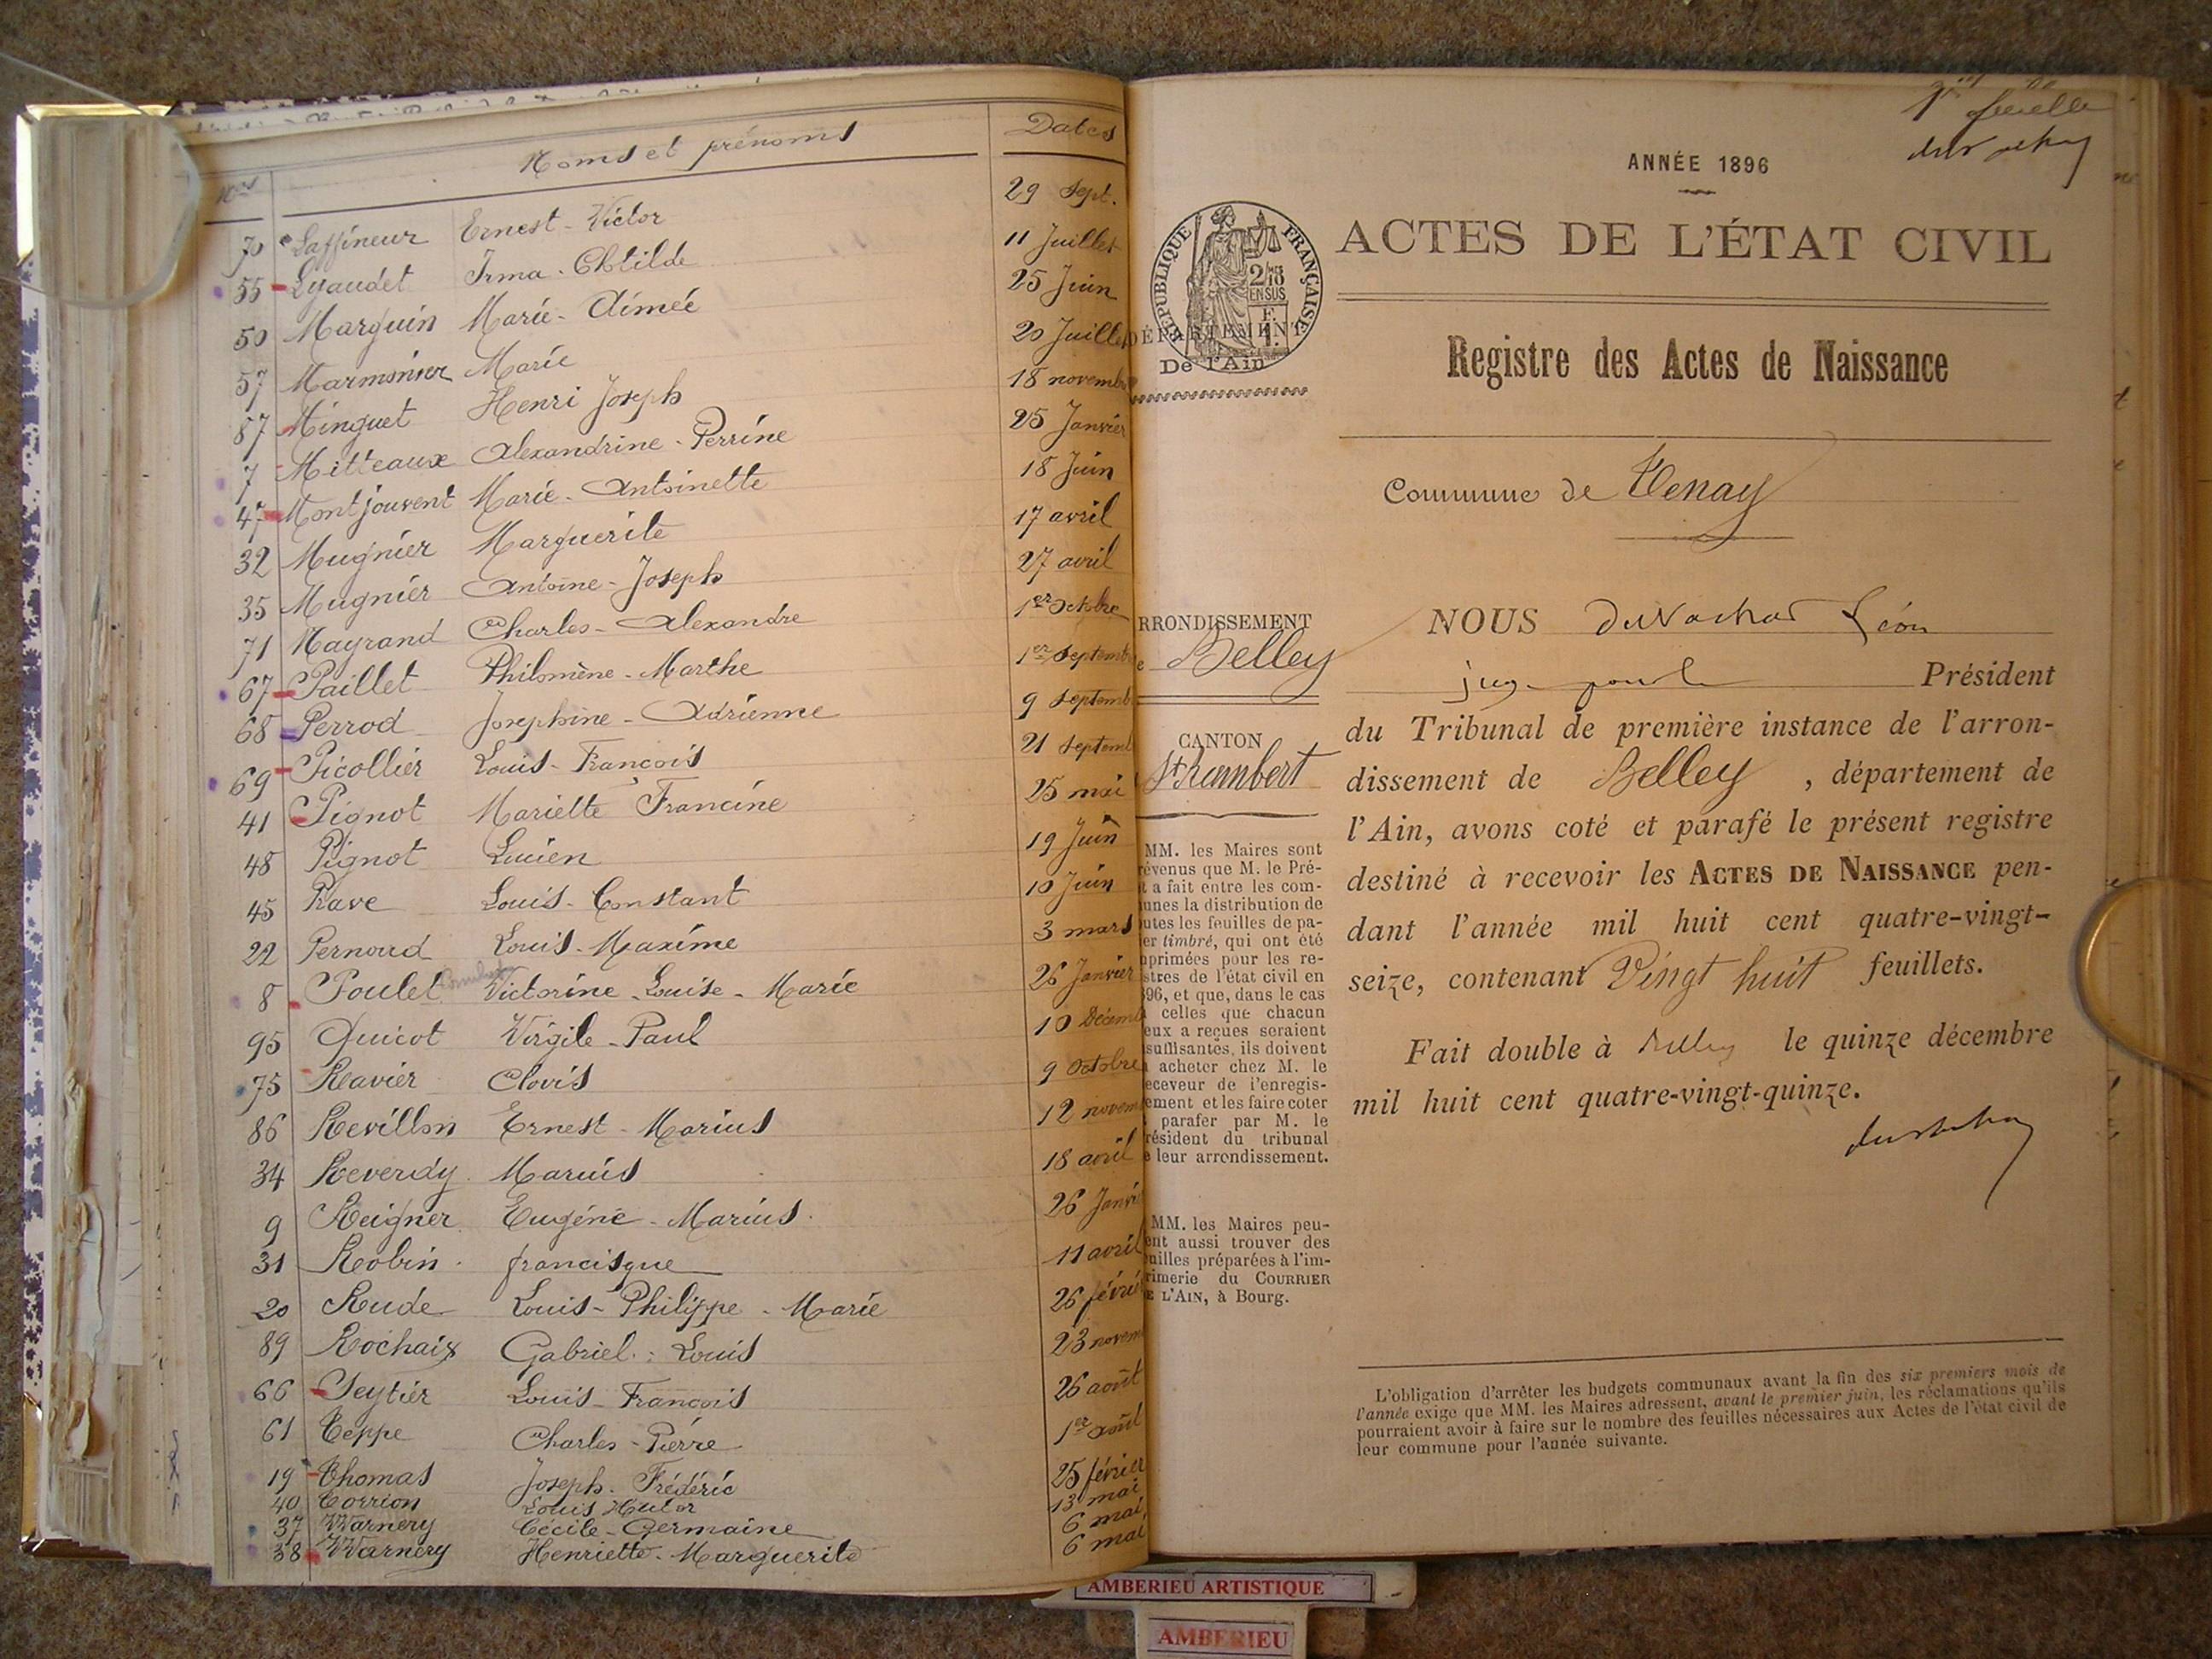 Nos Noms et prénoms Dates
70 Laffineur Ernest-Victor 29 Sept.
55 Lyaudet Irma-Clotilde 11 Juillet
50 Marguin Marie-Aimée 25 Juin
57 Marmonier Marie 20 Juillet
87 Minguet Henri Joseph 18 novembre
7 Mitteaux Alexandrine-Perrine 25 Janvier
47 Montjouvent Marie-Antoinette 18 Juin
32 Mugnier Marguerite 17 avril
35 Mugnier Antoine-Joseph 27 avril
71 Mayrand Charles-Alexandre 1er Octobre
67 Paillet Philomène-Marthe 1er Septemb
68 Perrod Josephine-Adrienne 9 Septemb
69 Picollier Louis-François 21 Septemb
41 Pignot Mariette Francine 25 mai
48 Pignot Lucien 19 Juin
45 Rave Louis-Constant 10 Juin
22 Pernoud Louis-Maxime 3 mars
8 Poulet Victorine-Louise-Marie 26 Janvier
95 Quicot Virgile-Paul 10 Décemb
75 Ravier Clovis 9 Octobre
86 Revillon Ernest-Marius 12 novem
34 Reverdy Marius 18 avril
9 Reigner Eugène-Marius 26 Janvi
31 Robin francisque 11 avril
20 Rude Louis-Philippe-Marie 26 févri
89 Rochaix Gabriel-Louis 23 novem
66 Seytier Louis-François 26 août
61 Teppe Charles-Pierre 1er août
19 Thomas Joseph-Frédéric 25 février
40 Torrion Louis 13 mai
37 Warnery Cécile-Germaine 6 mai
38 Warnery Henriette-Marguerite 6 mai
ANNÉE 1896
RÉPUBLIQUE FRANÇAISE
ACTES DE L'ÉTAT CIVIL
DÉPARTEMENT
De l'Ain
Registre des Actes de Naissance
Commune de Tenay
RRONDISSEMENT
Belley
CANTON
St Rambert
MM. les Maires sont
révenus que M. le Pré-
t a fait entre les com-
unes la distribution de
utes les feuilles de pa-
er timbré, qui ont été
primées pour les re-
stres de l'état civil en
96, et que, dans le cas
celles que chacun
eux a reçues seraient
suffisantes, ils doivent
acheter chez M. le
eceveur de l'enregis-
ement et les faire coter
parafer par M. le
résident du tribunal
e leur arrondissement.
MM. les Maires peu-
ent aussi trouver des
uilles préparées à l'im-
rimerie du COURRIER
E L'AIN, à Bourg.
NOUS Léon
Président
du Tribunal de première instance de l'arron-
dissement de Belley , département de
l'Ain, avons coté et parafé le présent registre
destiné à recevoir les ACTES DE NAISSANCE pen-
dant l'année mil huit cent quatre-vingt-
seize, contenant Vingt huit feuillets.
Fait double à Belley le quinze décembre
mil huit cent quatre-vingt-quinze.
L'obligation d'arrêter les budgets communaux avant la fin des six premiers mois de
l'année exige que MM. les Maires adressent, avant le premier juin, les réclamations qu'ils
pourraient avoir à faire sur le nombre des feuilles nécessaires aux Actes de l'état civil de
leur commune pour l'année suivante.
AMBERIEU ARTISTIQUE
AMBERIEU